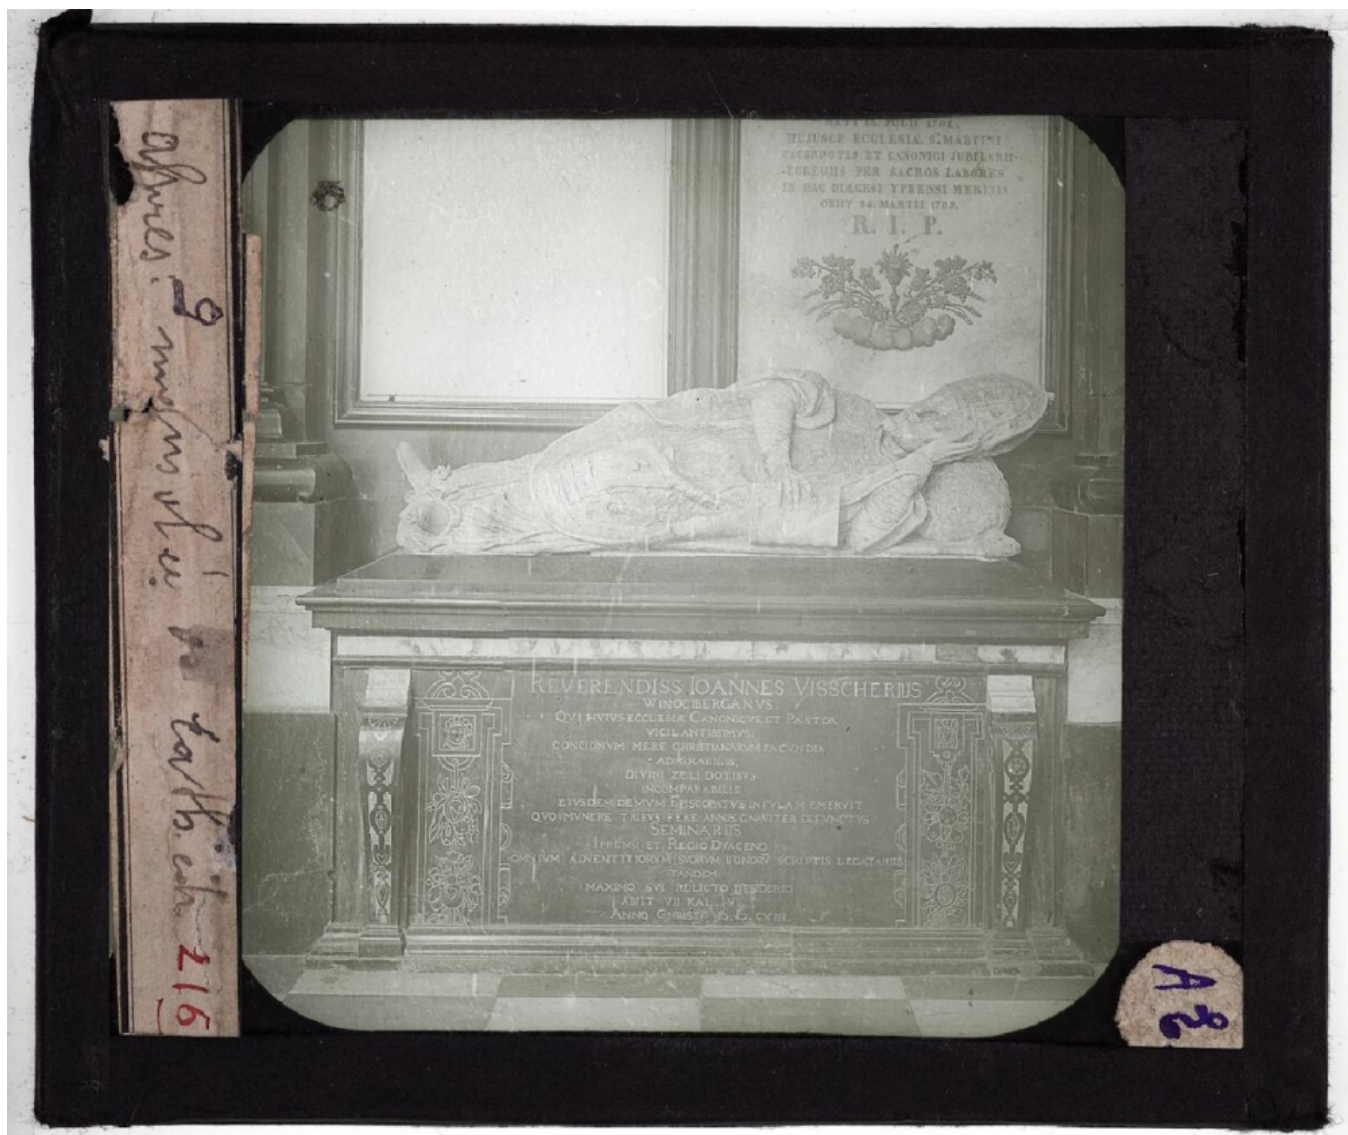 JULII 1701.
HUJUSCE ECCLESIÆ S. MARTINI
SACERDOTIS ET CANONICI JUBILARII
EGREGIIS PER SACROS LABORES
IN HAC DIŒCESI YPRENSI MERITIS
OBIIT 24. MARTII 1789.
R. I. P.
REVERENDISS. IOANNES VISSCHERIUS
WINOCIBERGANVS.
QVI HVIVS ECCLESIÆ CANONICVS ET PASTOR
VIGILANTISSIMVS.
CONCIONVM MERE CHRISTIANARVM FACVNDIA
ADMIRABILIS,
DIVINI ZELI DOTIBVS
INCOMPARABILIS
EIVSDEM DEMVM EPISCOPATVS INFVLAM EMERVIT
QVO MVNERE TRIBVS FERE ANNIS GNAVITER DEFVNCTVS
SEMINARIIS
IPRENSI ET REGIO DVACENO
OMNIVM ADVENTITIORVM SVORVM BONORV SCRIPTIS LEGATARIIS
TANDEM
MAXIMO SVI RELICTO DESIDERIO
ABIIT VII KAL.
ANNO CHRISTI CXIII
9
216
A